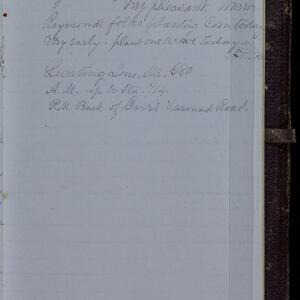 Very pleasant, Warm
Raymonds folks planting Corn today
Very early - plant one acre today
Locating Line, Sta. 660
A.M. up to Sta. 714
P.M. Back of Carrs Around Road.